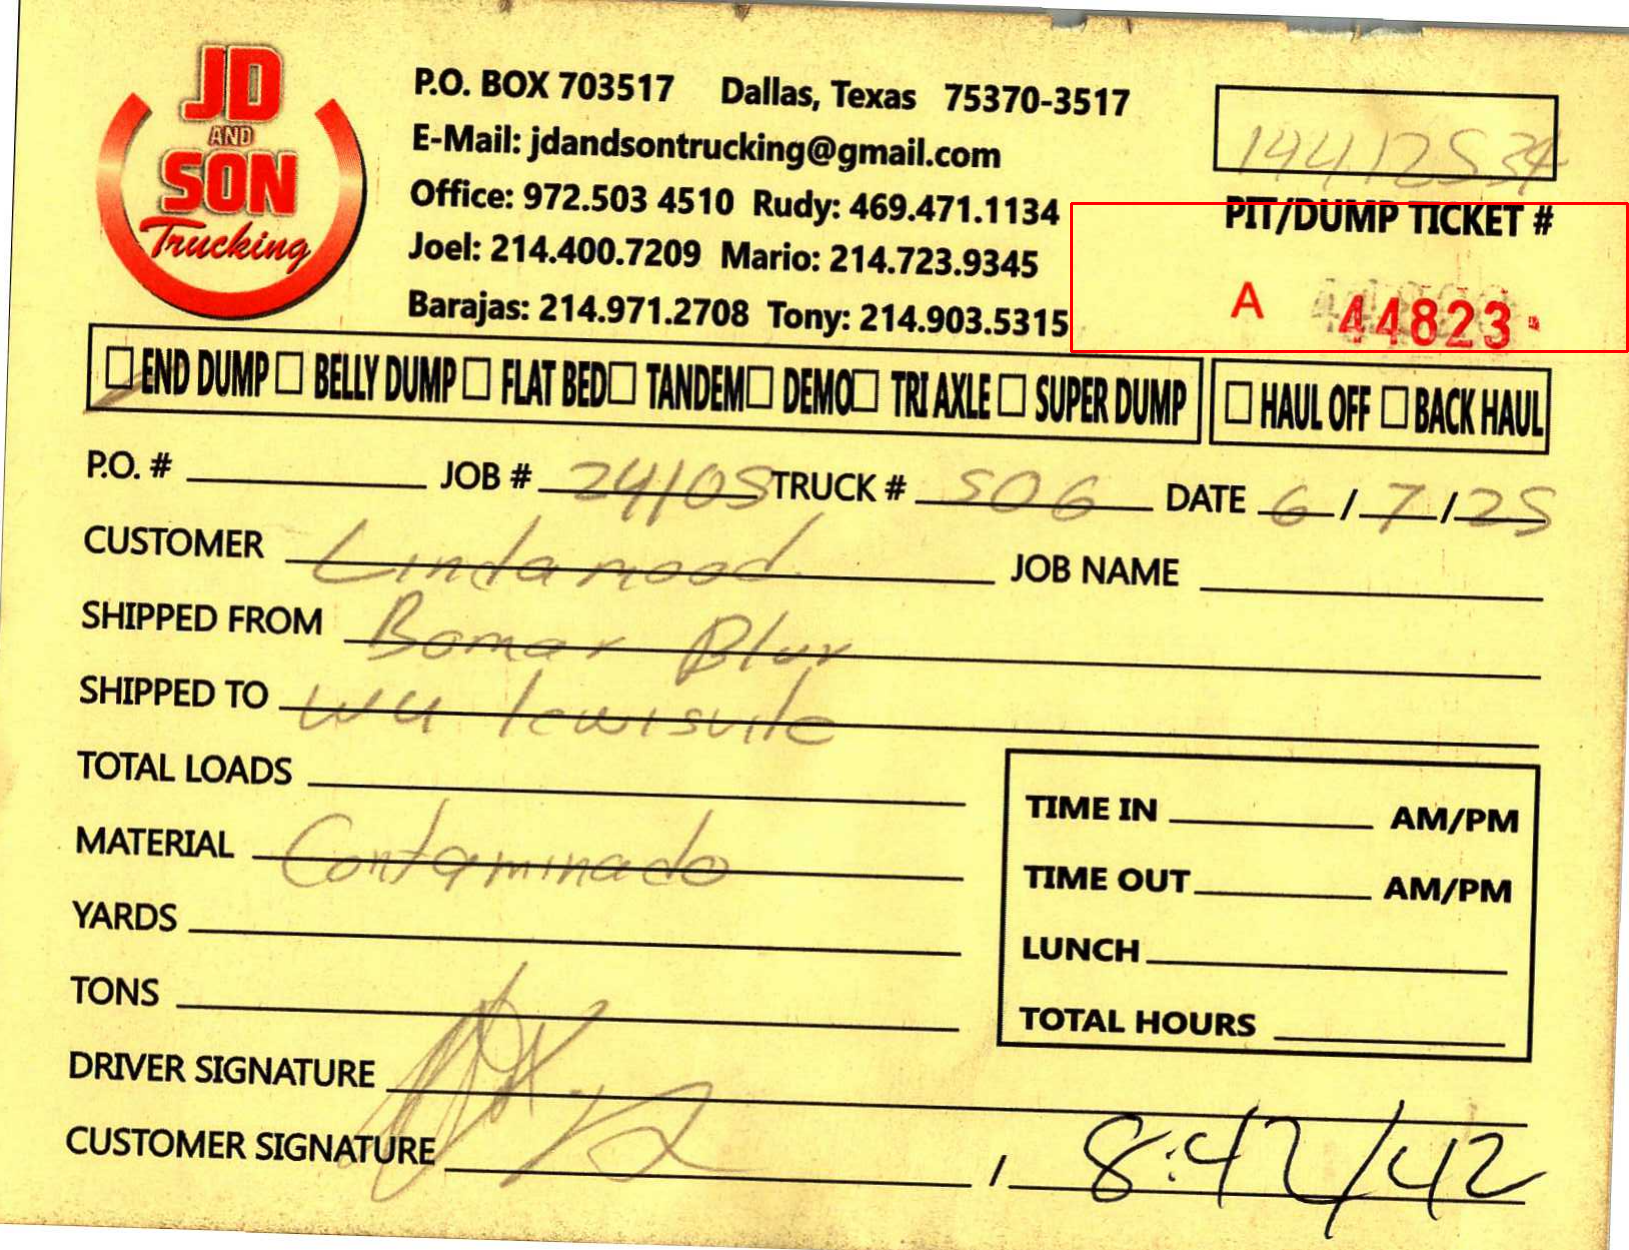 JD
AND
SON
Trucking
P.O. BOX 703517 Dallas, Texas 75370-3517
E-Mail: jdandsontrucking@gmail.com
Office: 972.503 4510 Rudy: 469.471.1134
Joel: 214.400.7209 Mario: 214.723.9345
Barajas: 214.971.2708 Tony: 214.903.5315
14412534
PIT/DUMP TICKET #
A 44823
END DUMP BELLY DUMP FLAT BED TANDEM DEMO TRI AXLE SUPER DUMP HAUL OFF BACK HAUL
P.O. # JOB # 24105 TRUCK # 506 DATE 6/7/25
CUSTOMER Lindamood JOB NAME
SHIPPED FROM Bomar Blvr
SHIPPED TO WM lewisvile
TOTAL LOADS
MATERIAL Contaminado
YARDS
TONS
TIME IN AM/PM
TIME OUT AM/PM
LUNCH
TOTAL HOURS
DRIVER SIGNATURE
CUSTOMER SIGNATURE , 8:42/42